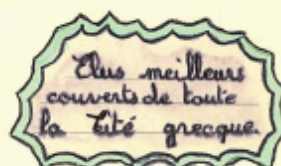 Élus meilleurs
couverts de toute
la Cité grecque.